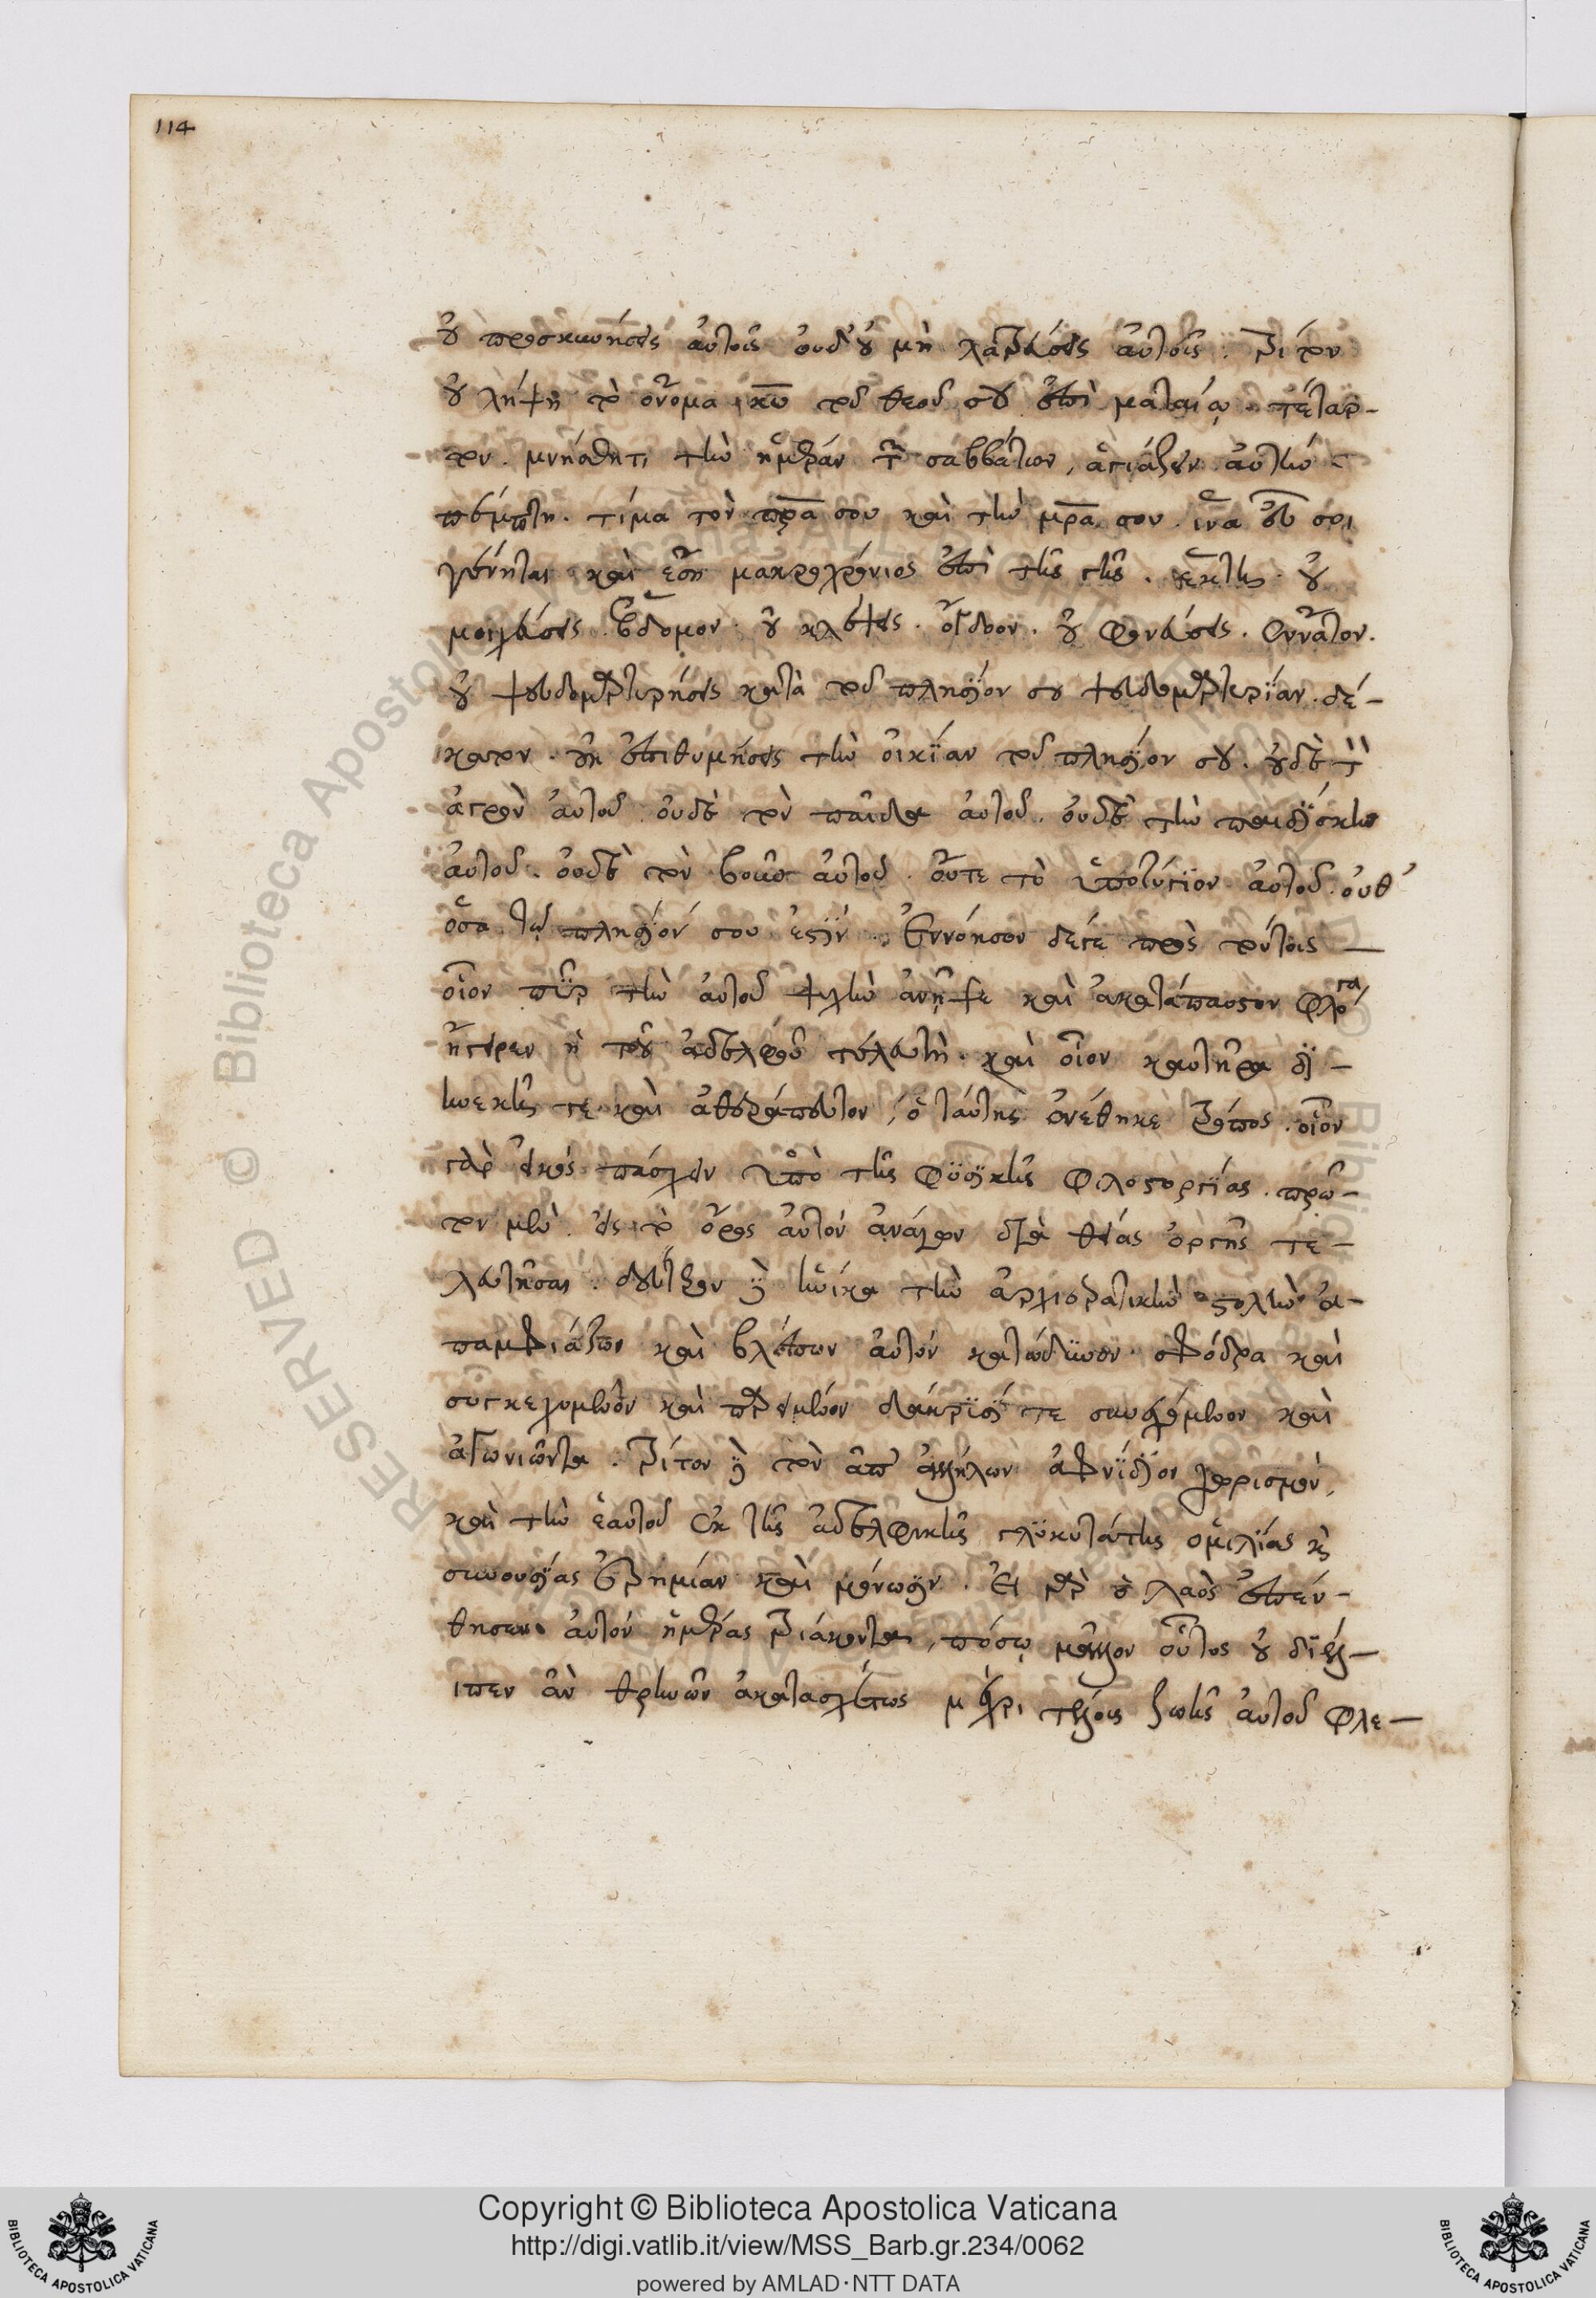 114
οὐ προσκυνήσεις αὐτοῖς οὐδ' οὐ μὴ λατρεύσεις αὐτοῖς. τρίτον
οὐ λήψῃ τὸ ὄνομα κυ τοῦ θεοῦ σου ἐπὶ ματαίῳ. τέταρ-
τον. μνήσθητι τὴν ἡμέραν τῶν σαββάτων, ἁγιάζειν αὐτήν
πέμπτη. τίμα τὸν πρα σου καὶ τὴν μρα σου. ἵνα εὖ σοι
γένηται καὶ ἔσῃ μακροχρόνιος ἐπὶ τῆς γῆς. ἕκτης. οὐ
μοιχεύσεις. ἕβδομον. οὐ κλέψεις. ὄγδοον. οὐ φονεύσεις. ἔννατον.
οὐ ψευδομαρτυρήσεις κατὰ τοῦ πλησίον σου ψευδομαρτυρίαν. δέ-
κατον. οὐκ ἐπιθυμήσεις τὴν οἰκίαν τοῦ πλησίον σου. οὐδὲ τὸν
ἀγρὸν αὐτοῦ οὐδὲ τὸν παῖδα αὐτοῦ. οὐδὲ τὴν παιδίσκην
αὐτοῦ. οὐδὲ τὸν βοῦν αὐτοῦ. οὔτε τὸ ὑποζύγιον αὐτοῦ. οὐθ'
ὅσα τῷ πλησίον σου ἐστίν. Ἐννόησον δέγε πρὸς τούτοις
οἷον πῦρ τὴν αὐτοῦ ψυχὴν ἀνῆψε καὶ ἀκατάπαυστον φλόγα
ἤγειρεν ἡ τοῦ ἀδελφοῦ τελευτή. καὶ οἷον καυτῆρα δι-
ηνεκῆς τε καὶ ἀθεράπευτον, ὁ ταύτης ἐνέθηκε τρόπος. οἷον
γὰρ εἰκὸς πάσχειν ὑπὸ τῆς φυσικῆς φιλοστοργίας. πρῶ-
τον μὲν εἰς τὸ ὄρος αὐτὸν ἀνάγων διὰ θείας ὀργῆς τε-
λευτῆσαι. δεύτερον δὲ ἡνίκα τὴν ἀρχιερατικὴν στολὴν ἀ-
παμφιάζων καὶ βλέπων αὐτὸν κατώδυνον σφόδρα καὶ
συγκεχυμένον καὶ πρ δάκρυσί τε συνεχόμενον καὶ
ἀγωνιῶντα. τρίτον δὲ τὸν ἀπ' ἀλλήλων ἀφνίδιον χωρισμόν,
καὶ τὴν ἑαυτοῦ ἐκ τῆς ἀδελφικῆς γλυκυτάτης ὁμιλίας καὶ
συνουσίας ἐρημίαν καὶ μόνωσιν. Εἰ γὰρ ὁ λαὸς ἐπέν-
θησεν αὐτὸν ἡμέρας τριάκοντα, πόσῳ μᾶλλον οὗτος οὐ διέλ-
ιπεν ἂν θρηνῶν ἀκατασχέτως μέχρι τέλους ζωῆς αὐτοῦ φλε-
RESERVED © Biblioteca Apostolica Vaticana
Copyright © Biblioteca Apostolica Vaticana
http://digi.vatlib.it/view/MSS_Barb.gr.234/0062
powered by AMLAD·NTT DATA
BIBLIOTECA APOSTOLICA VATICANA
BIBLIOTECA APOSTOLICA VATICANA